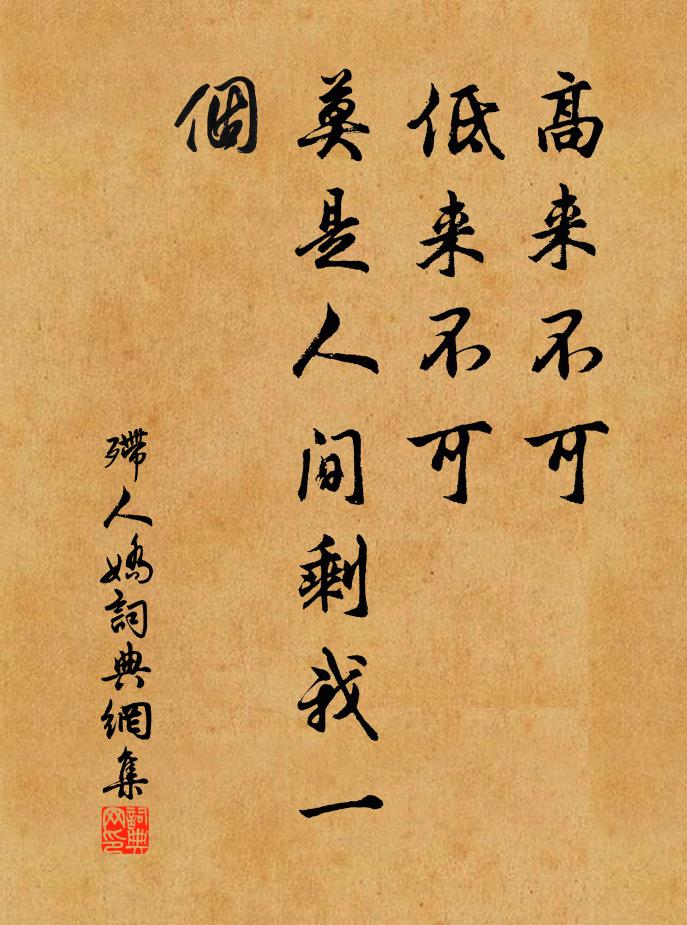 高来不可
低来不可
莫是人间剩我一
個
殢人嬌詞典網集
詞典
网印